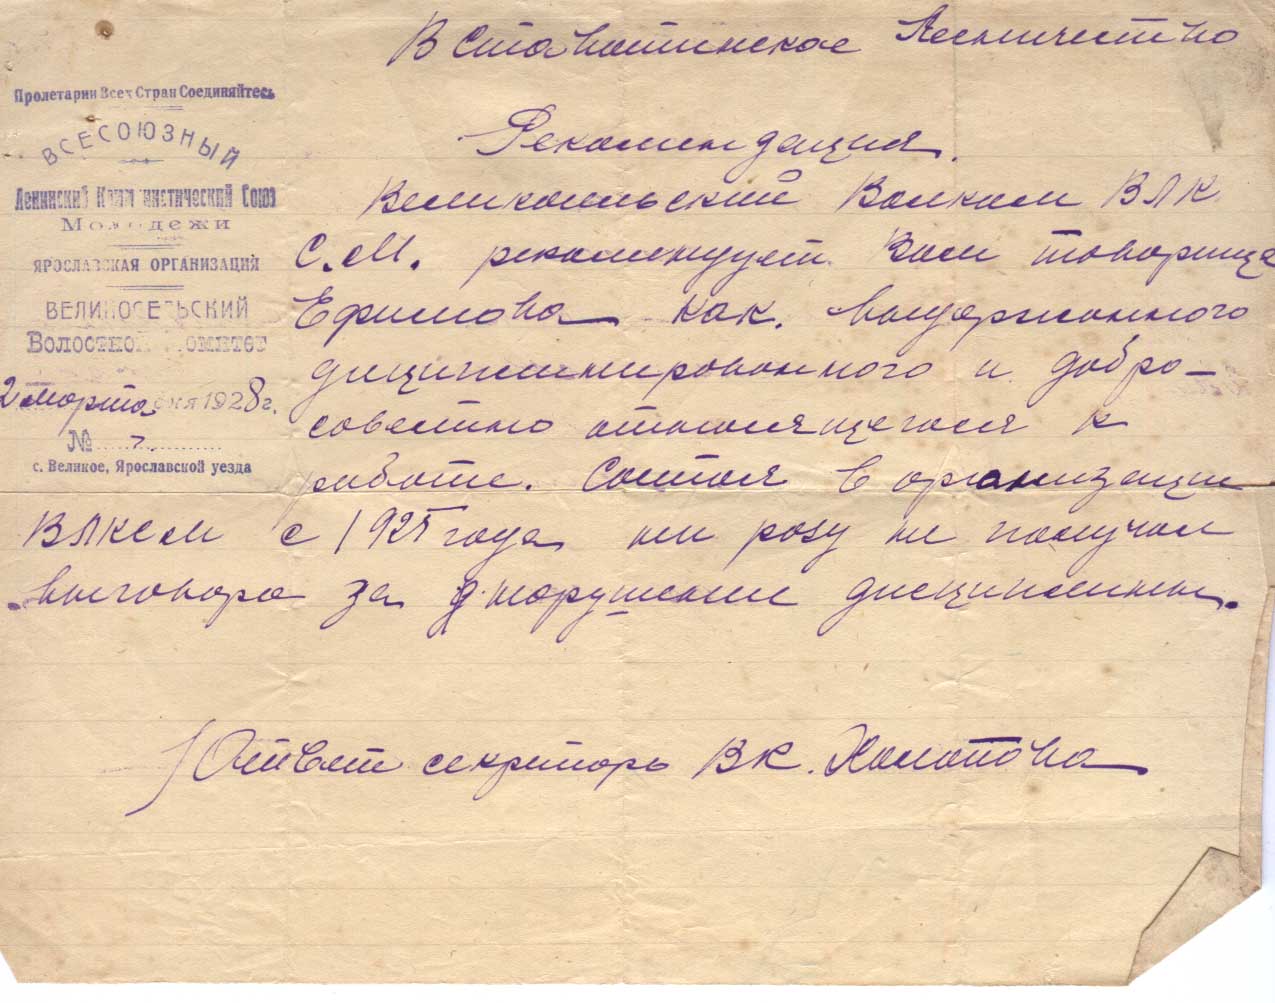 В Ставотинское Лесничество
Пролетарии Всех Стран Соединяйтесь
ВСЕСОЮЗНЫЙ
Ленинский Коммунистический Союз
Молодежи
ЯРОСЛАВСКАЯ ОРГАНИЗАЦИЯ
ВЕЛИКОСЕЛЬСКИЙ
Волостной Комитет
2 марта дня 1928 г.
№ 7
с. Великое, Ярославской уезда
Рекомендация.
Великосельский Волком ВЛК
С.М. рекомендует Вам товарища
Ефимова как. выдержанного
дициплинированного и добро-
совестно относящегося к
работе. Состоя в организации
ВЛКСМ с 1925 года ни разу не получал
выговора за нарушение дисциплины.
Ответ секретарь ВК.